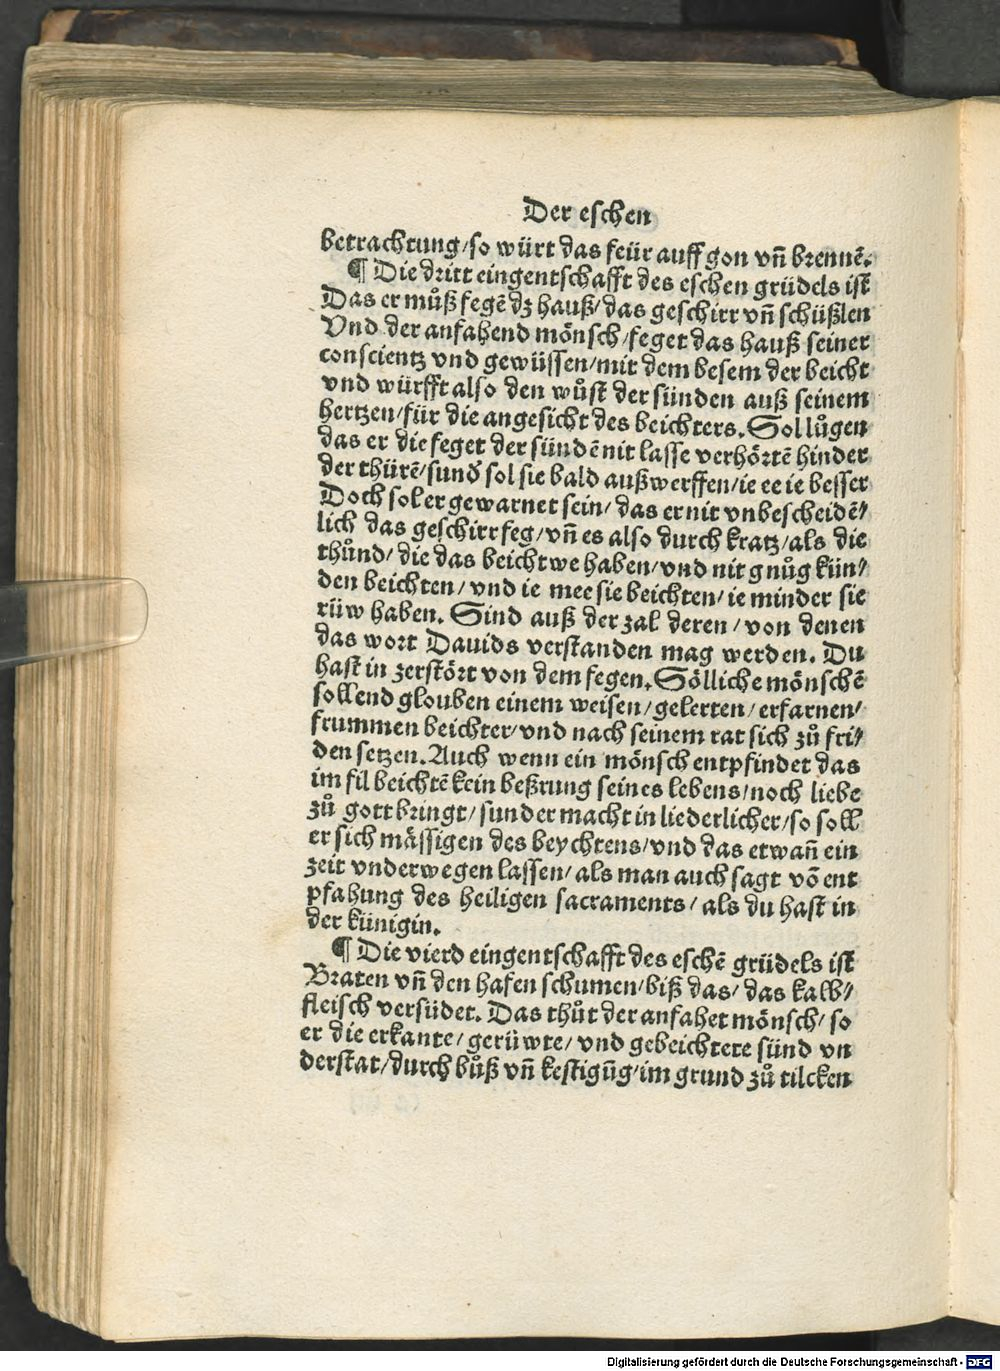 Der eschen
betrachtung/so würt das feür auff gon vñ brennẽ.
¶ Die dritt eingentschafft des eschen grüdels ist
Das er můß fegẽ dz hauß/das geschirr vñ schüßlen
Vnd der anfahend mönsch/feget das hauß seiner
conscientz vnd gewüssen/mit dem besem der beicht
vnd würfft also den wůst der sünden auß seinem
hertzen/für die angesicht des beichters. Sol lůgen
das er die feget der sündẽ nit lasse verhörtẽ hinder
der thürẽ/sunď sol sie bald außwerffen/ie ee ie besser
Doch sol er gewarnet sein/ das er nit vnbescheidẽ/
lich das geschirr feg/vñ es also durch kratz/als die
thůnd/ die das beichtwe haben/vnd nit gnůg kün/
den beichten/ vnd ie mee sie beichten/ ie minder sie
rüw haben. Sind auß der zal deren/ von denen
das wort Dauids verstanden mag werden. Du
hast in zerstört von dem fegen. Sölliche mönschẽ
sollend glouben einem weisen/gelerten/erfarnen/
frummen beichter/vnd nach seinem rat sich zů fri/
den setzen. Auch wenn ein mönsch entpfindet das
im fil beichtẽ kein beßrung seines lebens/noch liebe
zů gott bringt/ sunder macht in liederlicher/so soll
er sich mässigen des beychtens/vnd das etwañ ein
zeit vnderwegen lassen/ als man auch sagt võ ent
pfahung des heiligen sacraments/ als du hast in
der künigin.
¶ Die vierd eingentschafft des eschẽ grüdels ist
Braten vñ den hafen schumen/biß das/ das kalb/
fleisch versüdet. Das thůt der anfahet mönsch/ so
er die erkante/ gerüwte/ vnd gebeichtete sünd vn
derstat/durch bůß vñ kestigũg/im grund zů tilcken
Digitalisierung gefördert durch die Deutsche Forschungsgemeinschaft - DFG